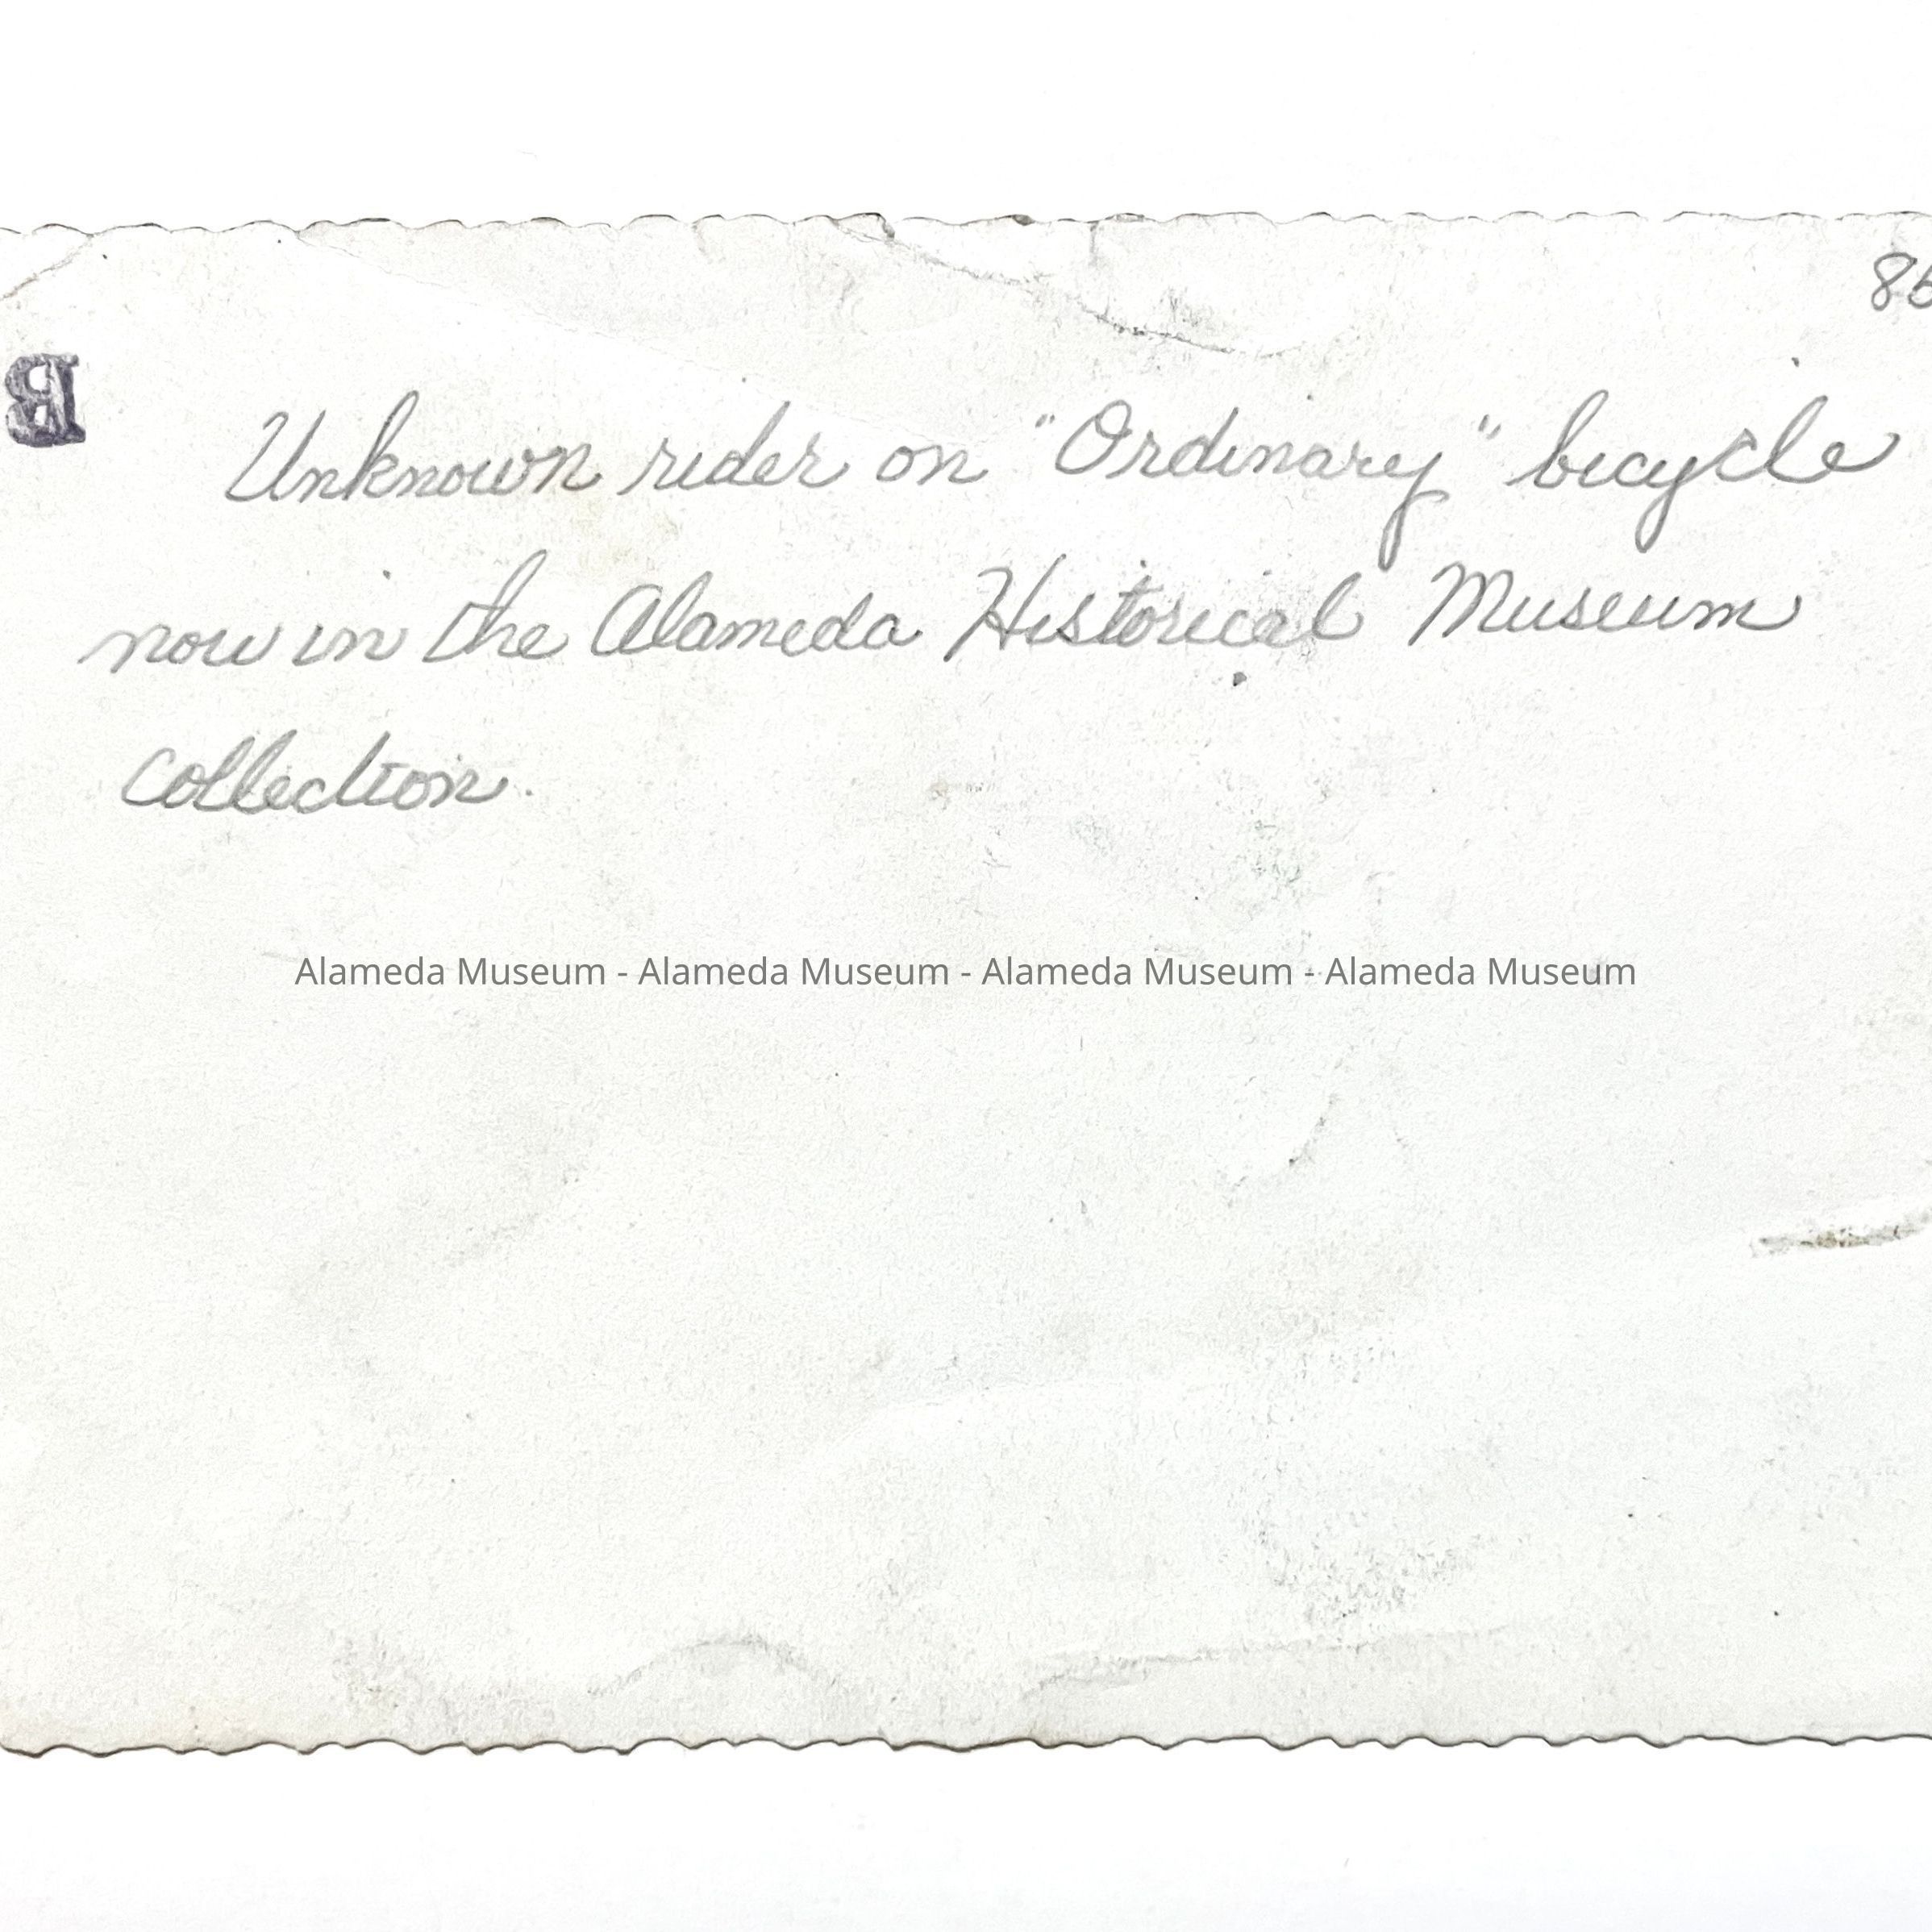 86
B
Unknown rider on "Ordinary" bicycle
now in the Alameda Historical Museum
collection.
Alameda Museum - Alameda Museum - Alameda Museum - Alameda Museum